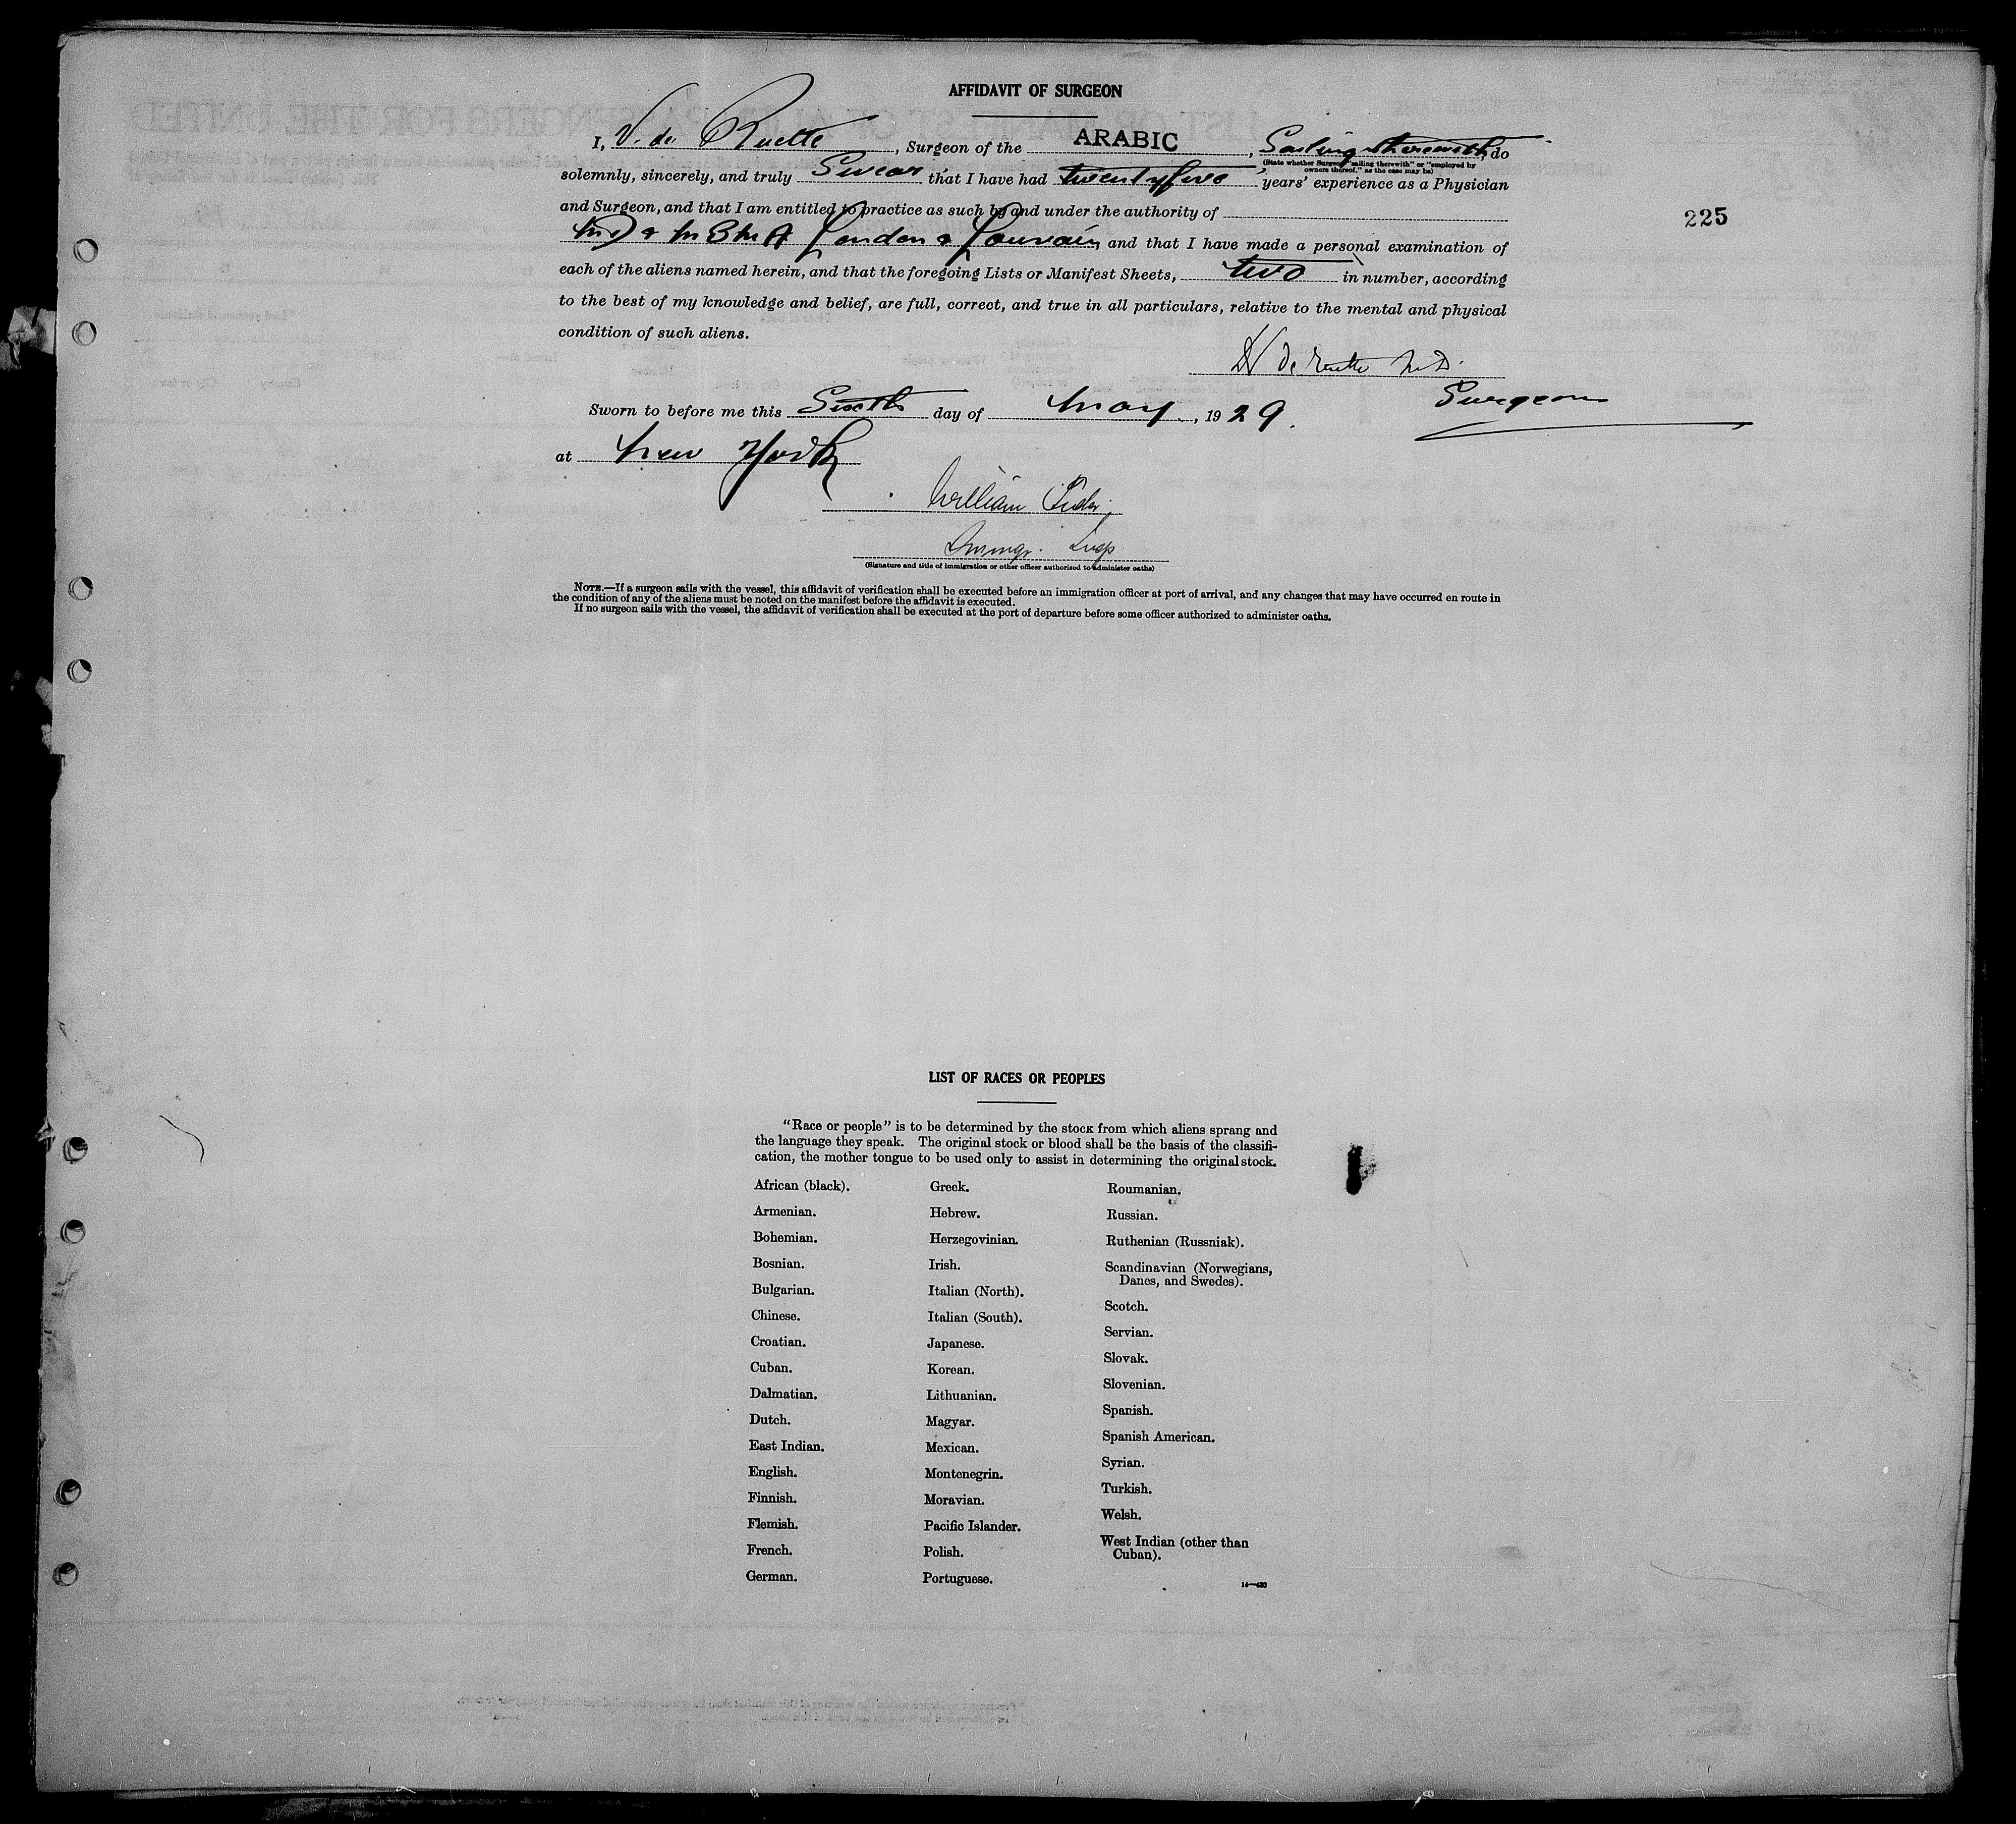 AFFIDAVIT OF SURGEON
I, V. de Ruette, Surgeon of the ARABIC, Sailing therewith, do
(State whether Surgeon "sailing therewith" or "employed by
owners thereof," as the case may be)
solemnly, sincerely, and truly Swear that I have had twenty five years' experience as a Physician
and Surgeon, and that I am entitled to practice as such by and under the authority of
225
MD & London & Louvain, and that I have made a personal examination of
each of the aliens named herein, and that the foregoing Lists or Manifest Sheets, two in number, according
to the best of my knowledge and belief, are full, correct, and true in all particulars, relative to the mental and physical
condition of such aliens.
V de Ruette M.D.
Surgeon
Sworn to before me this Sixth day of May, 1929.
at New York
William
Immgr. Insp
(Signature and title of immigration or other officer authorized to administer oaths)
NOTE.—If a surgeon sails with the vessel, this affidavit of verification shall be executed before an immigration officer at port of arrival, and any changes that may have occurred en route in
the condition of any of the aliens must be noted on the manifest before the affidavit is executed.
If no surgeon sails with the vessel, the affidavit of verification shall be executed at the port of departure before some officer authorized to administer oaths.
LIST OF RACES OR PEOPLES
"Race or people" is to be determined by the stock from which aliens sprang and
the language they speak. The original stock or blood shall be the basis of the classifi-
cation, the mother tongue to be used only to assist in determining the original stock.
African (black).
Armenian.
Bohemian.
Bosnian.
Bulgarian.
Chinese.
Croatian.
Cuban.
Dalmatian.
Dutch.
East Indian.
English.
Finnish.
Flemish.
French.
German.
Greek.
Hebrew.
Herzegovinian.
Irish.
Italian (North).
Italian (South).
Japanese.
Korean.
Lithuanian.
Magyar.
Mexican.
Montenegrin.
Moravian.
Pacific Islander.
Polish.
Portuguese.
Roumanian.
Russian.
Ruthenian (Russniak).
Scandinavian (Norwegians,
Danes, and Swedes).
Scotch.
Servian.
Slovak.
Slovenian.
Spanish.
Spanish American.
Syrian.
Turkish.
Welsh.
West Indian (other than
Cuban).
14—430